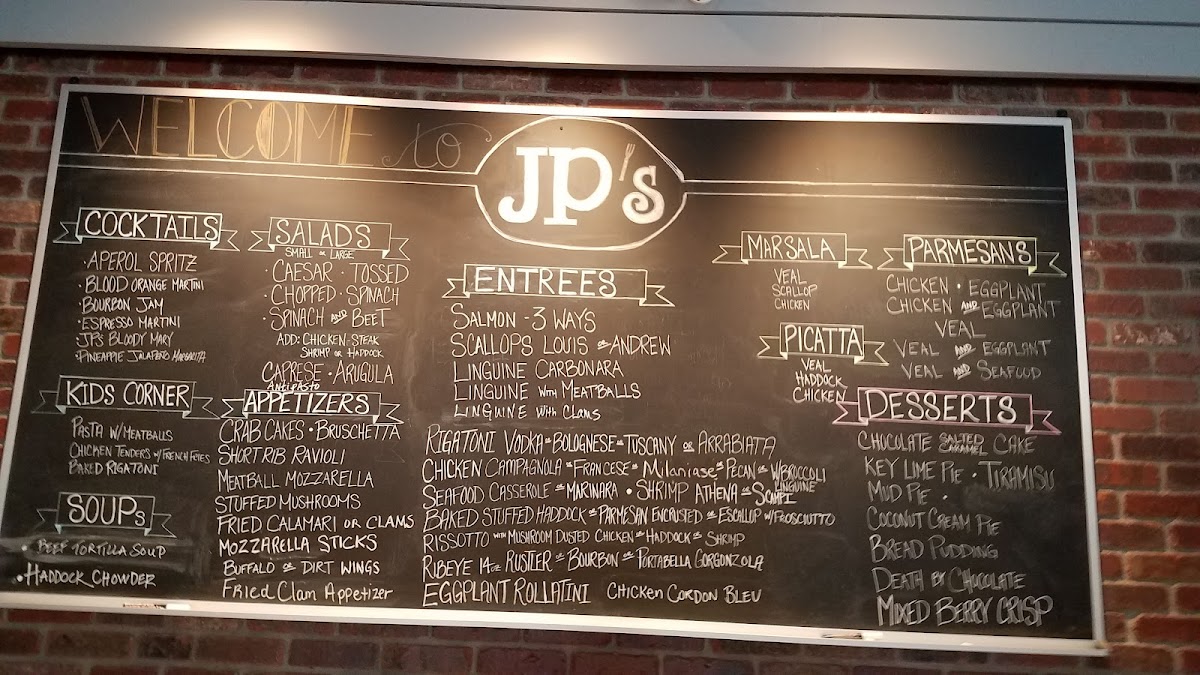 WELCOME to
JP's
COCKTAILS
· APEROL SPRITZ
· BLOOD ORANGE MARTINI
· BOURBON JAM
· ESPRESSO MARTINI
· JP'S BLOODY MARY
· PINEAPPLE JALAPEÑO MARGARITA
KIDS CORNER
PASTA W/MEATBALLS
CHICKEN TENDERS W/FRENCH FRIES
BAKED RIGATONI
SOUPs
· BEEF TORTILLA SOUP
· HADDOCK CHOWDER
SALADS
SMALL OR LARGE
· CAESAR · TOSSED
· CHOPPED · SPINACH
· SPINACH AND BEET
ADD: CHICKEN · STEAK
SHRIMP OR HADDOCK
CAPRESE · ARUGULA
ANTIPASTO
APPETIZERS
CRAB CAKES · BRUSCHETTA
SHORT RIB RAVIOLI
MEATBALL MOZZARELLA
STUFFED MUSHROOMS
FRIED CALAMARI OR CLAMS
MOZZARELLA STICKS
BUFFALO OR DIRT WINGS
Fried Clam Appetizer
ENTREES
SALMON - 3 WAYS
SCALLOPS LOUIS OR ANDREW
LINGUINE CARBONARA
LINGUINE WITH MEATBALLS
LINGUINE WITH CLAMS
RIGATONI VODKA OR BOLOGNESE OR TUSCANY OR ARRABIATA
CHICKEN CAMPAGNOLA OR FRANCESE OR MILANIASE OR PECAN OR W/BROCCOLI LINGUINE
SEAFOOD CASSEROLE OR MARINARA · SHRIMP ATHENA OR SCAMPI
BAKED STUFFED HADDOCK OR PARMESAN ENCRUSTED OR ESCALLOP W/PROSCIUTTO
RISSOTTO WITH MUSHROOM DUSTED CHICKEN OR HADDOCK OR SHRIMP
RIBEYE 14oz RUSTLER OR BOURBON OR PORTABELLA GORGONZOLA
EGGPLANT ROLLATINI CHICKEN CORDON BLEU
MARSALA
VEAL
SCALLOP
CHICKEN
PICATTA
VEAL
HADDOCK
CHICKEN
PARMESANS
CHICKEN · EGGPLANT
CHICKEN AND EGGPLANT
VEAL
VEAL AND EGGPLANT
VEAL AND SEAFOOD
DESSERTS
CHOCOLATE SALTED CARAMEL CAKE
KEY LIME PIE · TIRAMISU
MUD PIE ·
COCONUT CREAM PIE
BREAD PUDDING
DEATH BY CHOCOLATE
MIXED BERRY CRISP